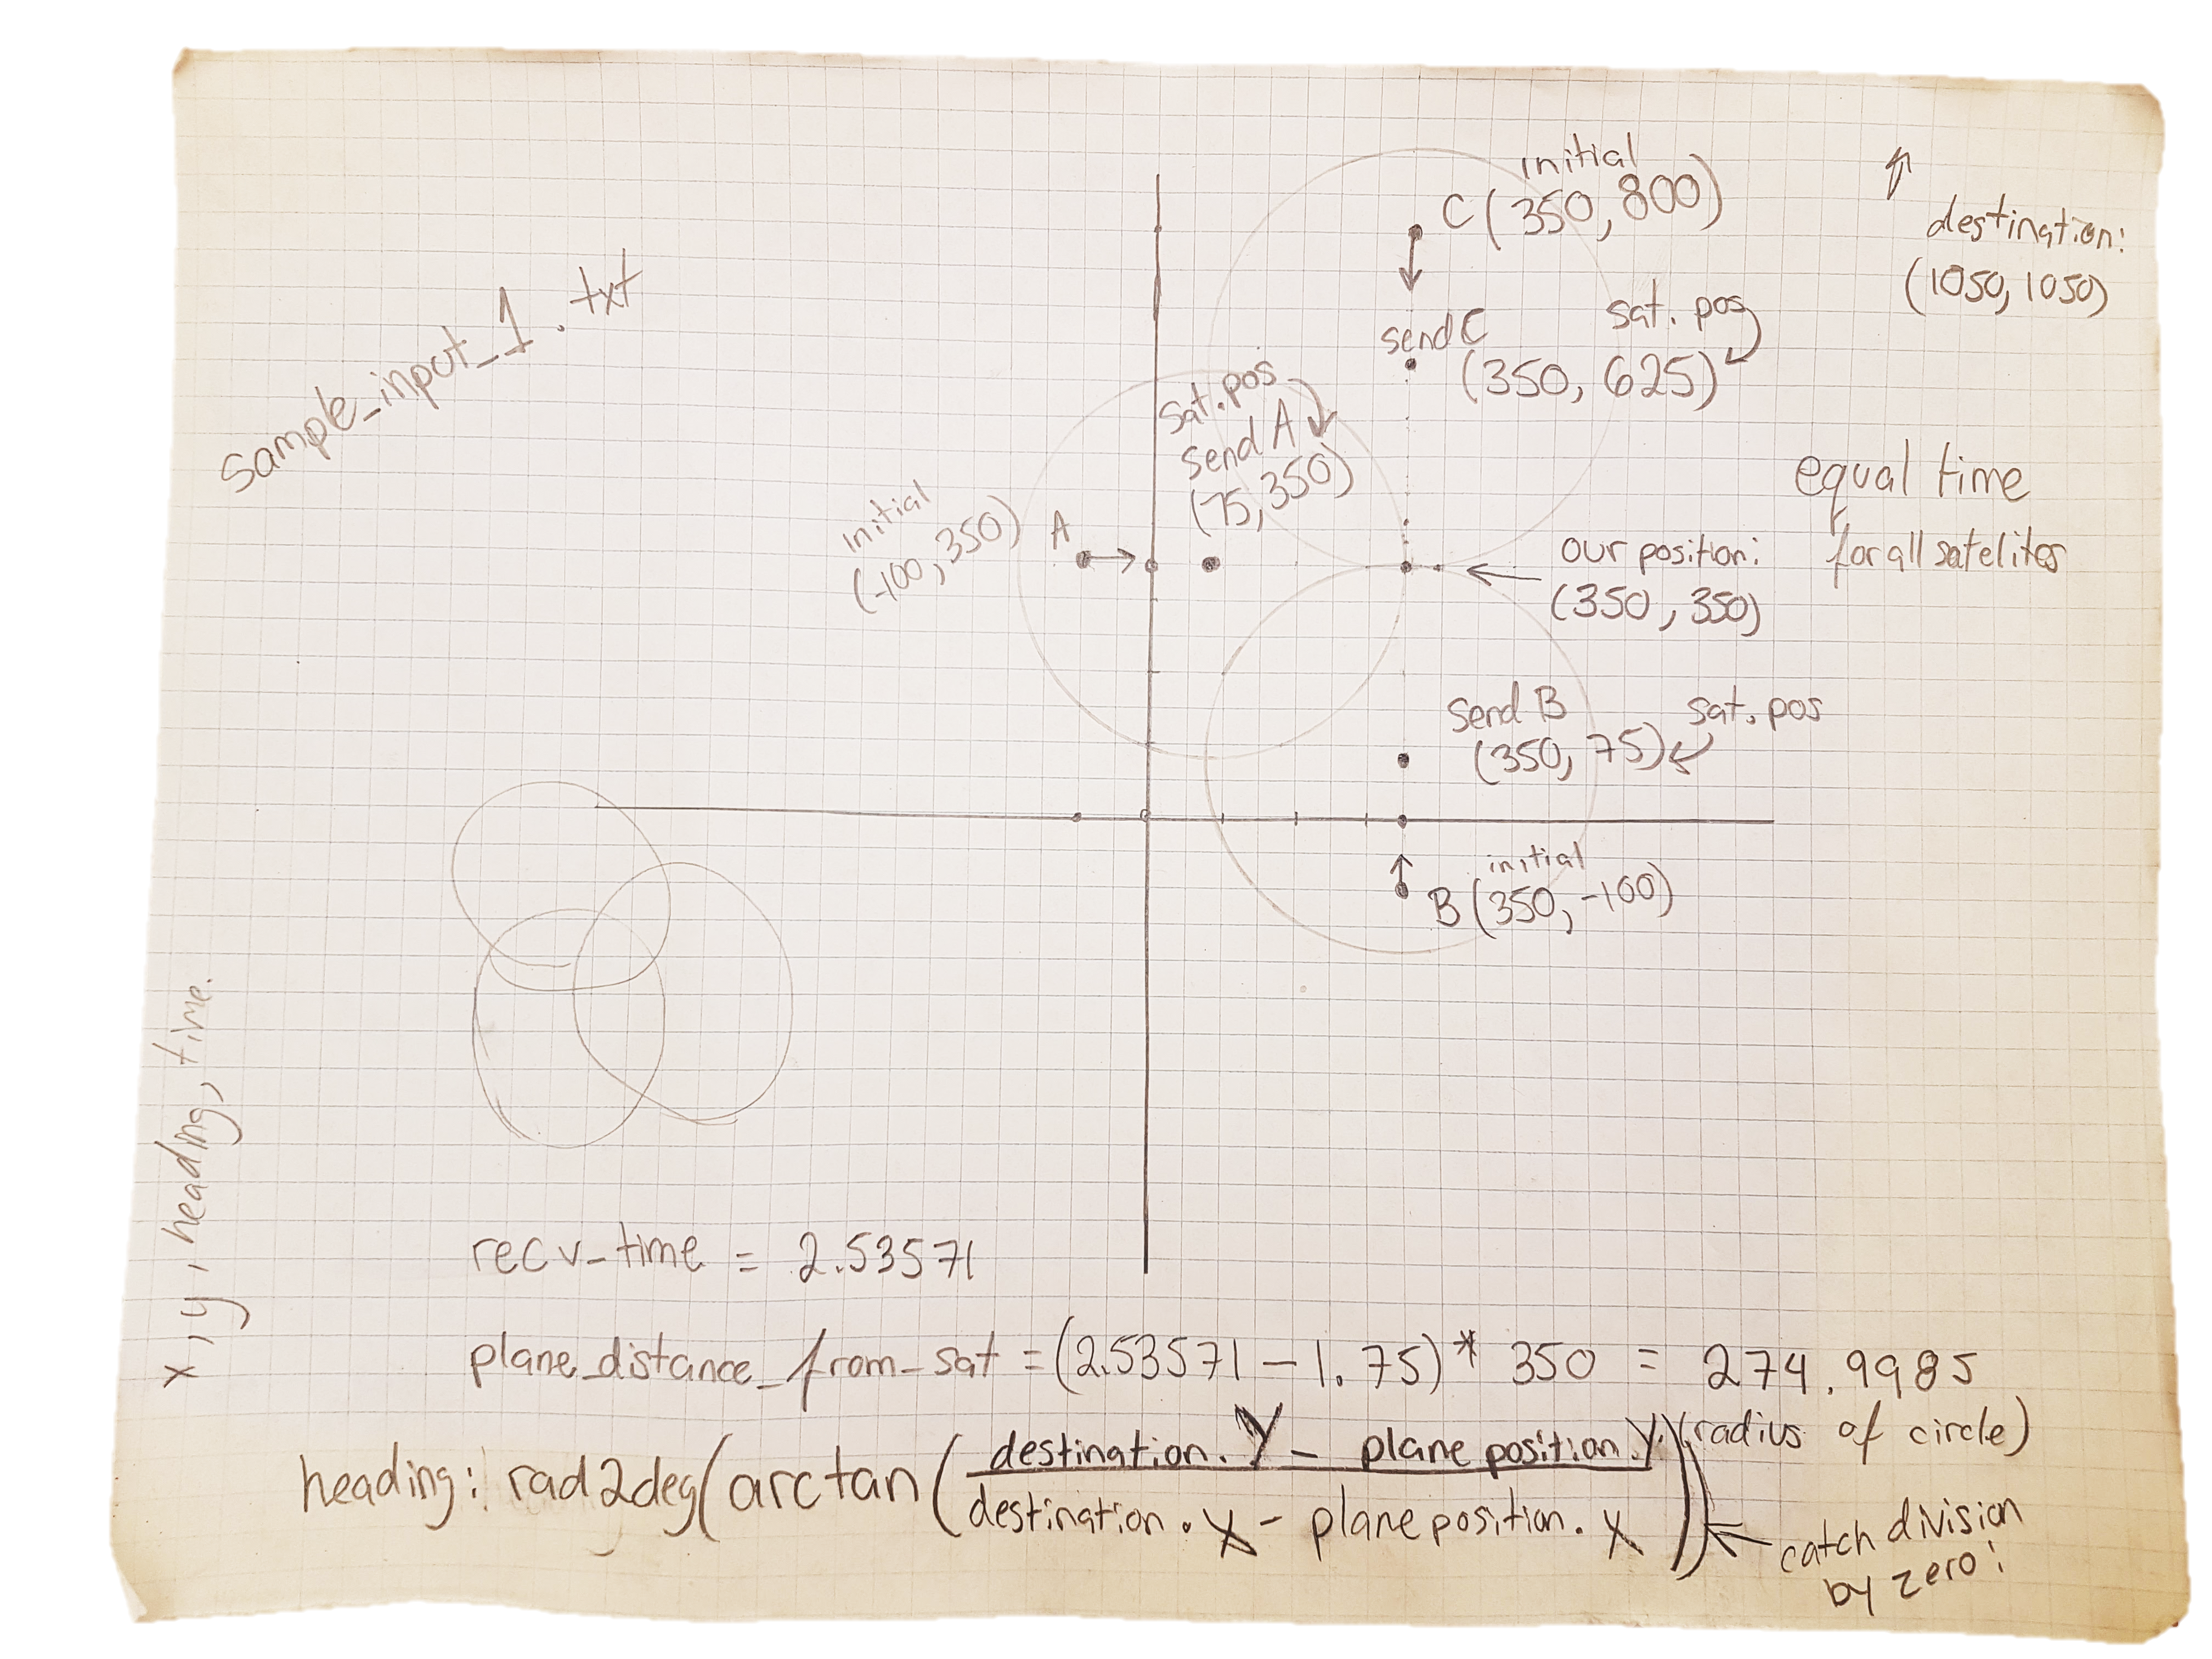 sample_input_1.txt
initial
C (350, 800)
destination:
(1050, 1050)
send C
sat. pos
(350, 625)
sat. pos
send A
(75, 350)
initial
(-100, 350)
A
equal time
for all satelites
our position:
(350, 350)
send B
sat. pos
(350, 75)
initial
B (350, -100)
x, y, heading, time.
recv_time = 2.53571
plane_distance_from_sat = (2.53571 - 1.75) * 350 = 274.9985
(radius of circle)
heading: rad2deg(arctan(destination.Y - plane position.Y
destination.x - plane position.x))
catch division
by zero!